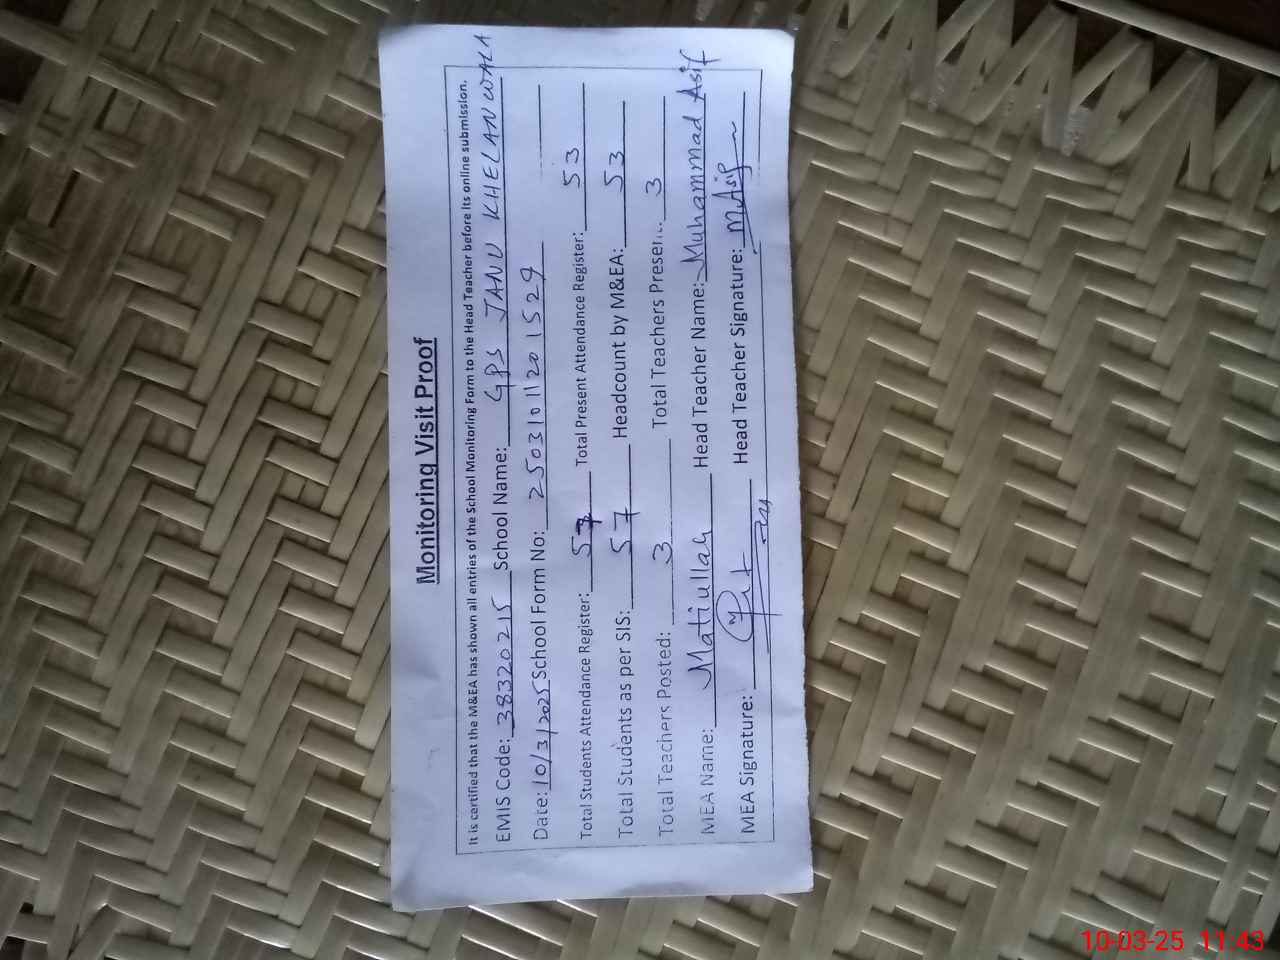 Monitoring Visit Proof
It is certified that the M&EA has shown all entries of the School Monitoring Form to the Head Teacher before its online submission.
EMIS Code: 38320215 School Name: GPS JANU KHELANWALA
Date: 10/3/2025 School Form No: 2503101120 1529
Total Students Attendance Register: 57 Total Present Attendance Register: 53
Total Students as per SIS: 57 Headcount by M&EA: 53
Total Teachers Posted: 3 Total Teachers Present: 3
MEA Name: Matiullah Head Teacher Name: Muhammad Asif
MEA Signature: Head Teacher Signature: M Asif
10-03-25 11:43